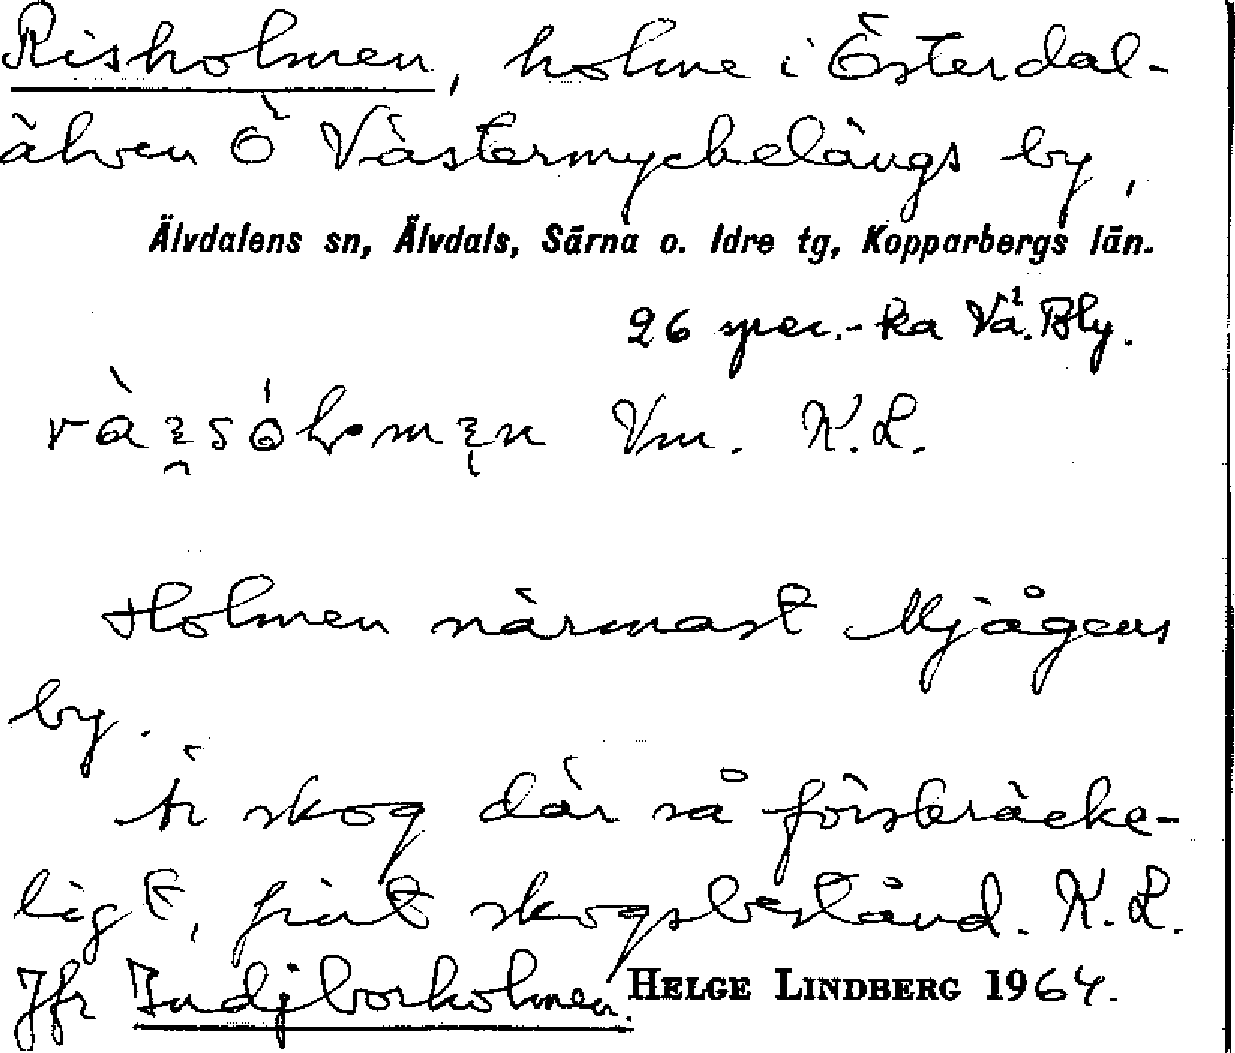 Risholmen, holme i Österdal-
älven Ö Västermyckelängs by,
Älvdalens sn, Älvdals, Särna o. Idre tg, Kopparbergs län.
26 spec.-ka Vä. Bly.
Vm. K.L.
Holmen närmast Mjågens
by.
Är skog där så förskräcke-
ligt, fint skogsbestånd. K.L.
Jfr Indjborholmen. HELGE LINDBERG 1964.